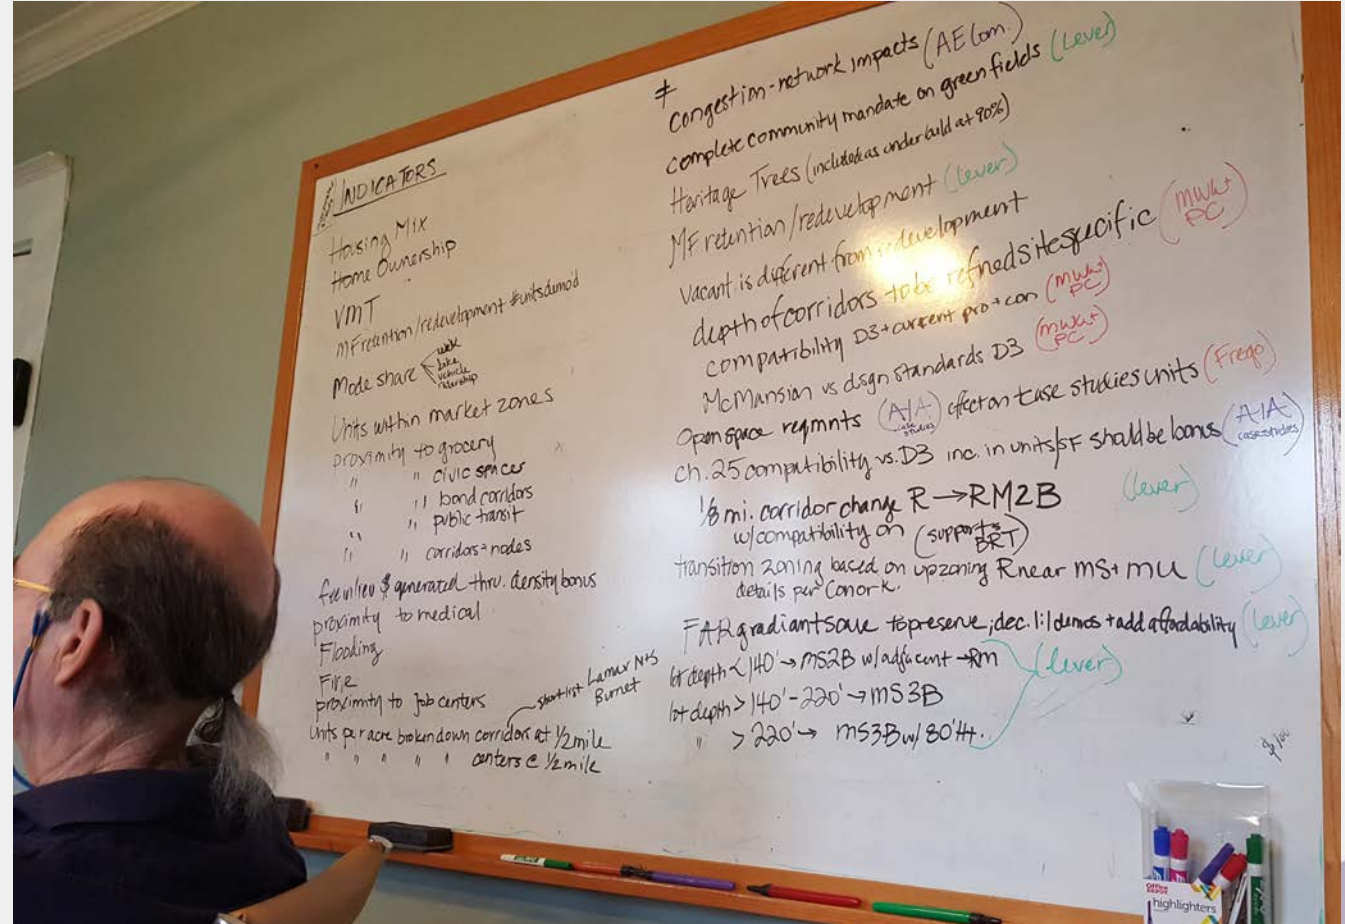 INDICATORS
Housing Mix
Home Ownership
VMT
MF retention/redevelopment #unitsdemod
Mode share walk
bike
vehicle
ridership
Units within market zones
proximity to grocery
" " civic spaces
" " bond corridors
" " public transit
" " corridors + nodes
fee in lieu $ generated thru. density bonus
proximity to medical
Flooding
Fire
proximity to Job centers
short list Lamar N+S
Burnet
Units per acre broken down corridors at 1/2 mile
" " " " " centers @ 1/2 mile
≠
congestion-network impacts (AECom.)
complete community mandate on green fields (Lever)
Heritage Trees (included as under build at 90%)
MF retention/redevelopment (Lever)
Vacant is different from redevelopment
depth of corridors to be refined site specific (MWh+
PC)
compatibility D3 + current pro + con (MWh+
PC)
McMansion vs dsgn standards D3 (MWh+
PC)
Open space reqmnts (AIA
case
studies) effect on case studies units (Frego)
ch. 25 compatibility vs. D3 inc. in units/SF should be bonus (AIA
case studies)
1/8 mi. corridor change R → RM2B (lever)
w/compatibility on (supports
BRT)
transition zoning based on upzoning R near MS + MU (Lever)
details per Conor K.
FAR gradiant scale to preserve, dec. 1:1 demos + add affordability (Lever)
lot depth < 140' → MS2B w/adjacent → RM (lever)
lot depth > 140' - 220' → MS3B
" > 220' → MS3B w/ 80' Ht.
Office
DEPOT
highlighters